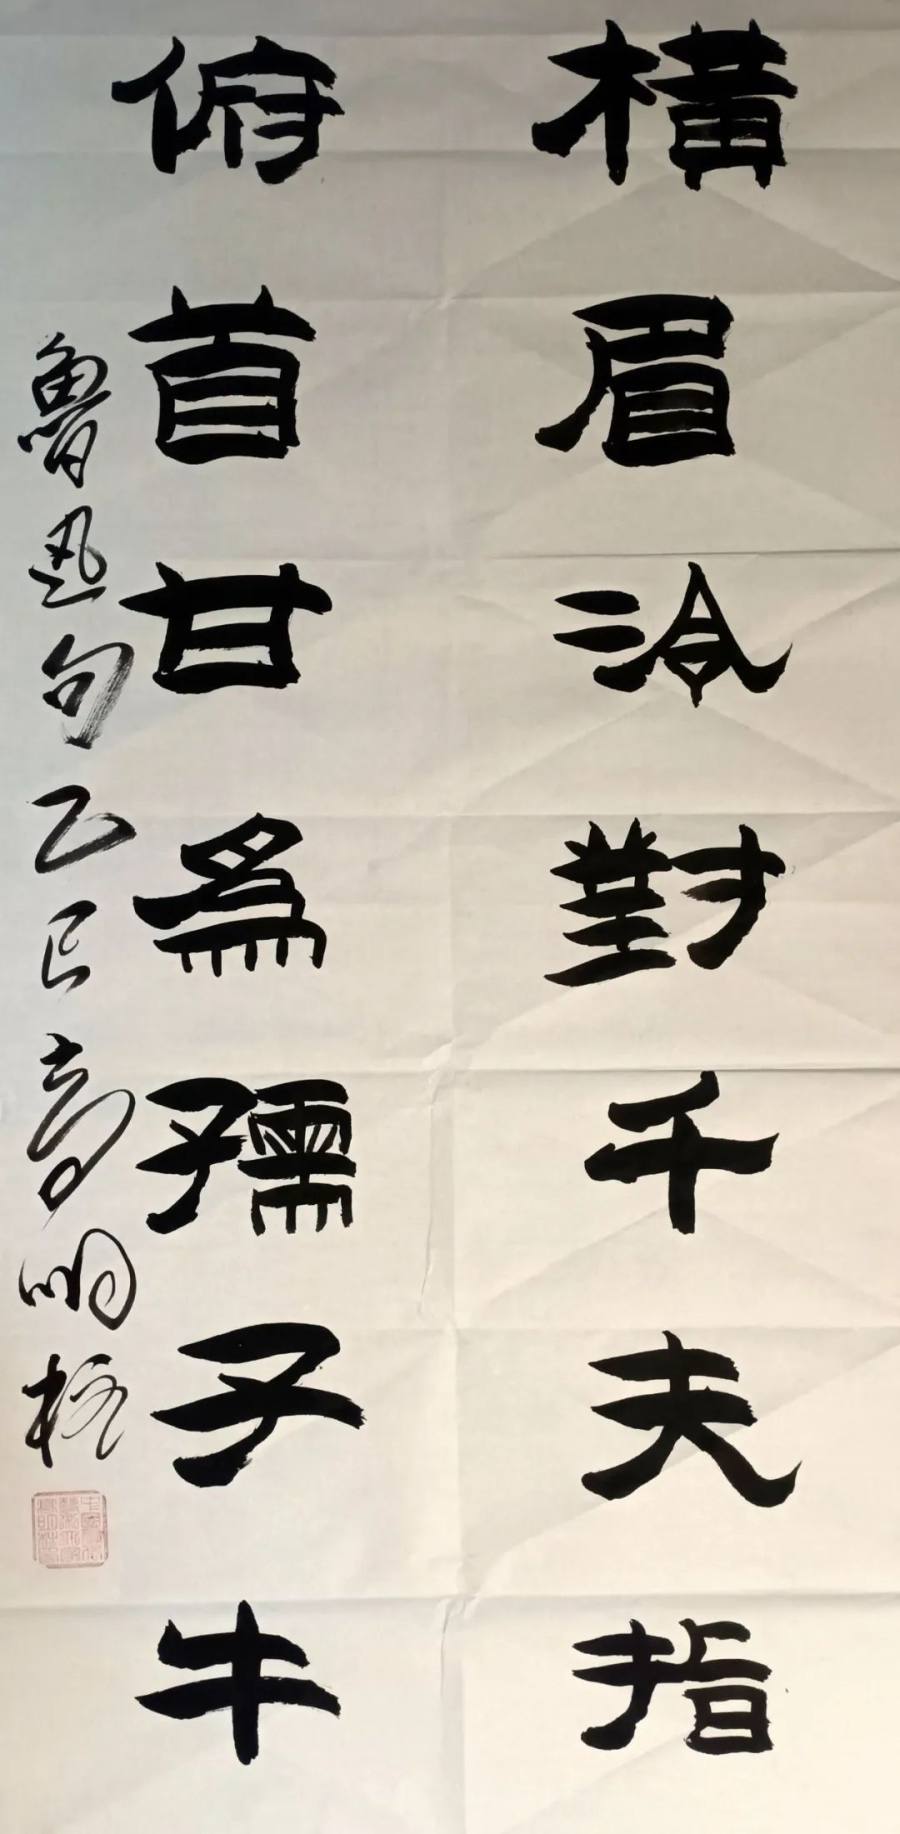 横眉泠對千夫指
俯首甘為孺子牛
魯迅句乙巳高明柱